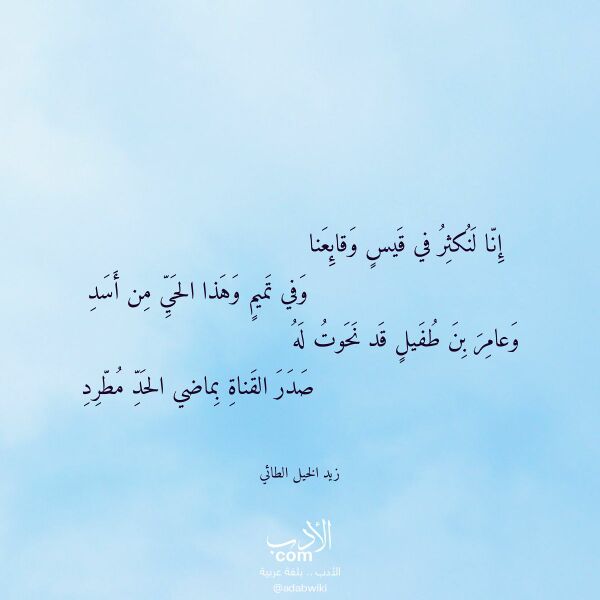 إِنّا لَنُكثِرُ في قَيسٍ وَقايِعَنا
وَفي تَميمٍ وَهَذا الحَيِّ مِن أَسَدِ
وَعامِرَ بِنَ طُفَيلٍ قَد نَحَوتُ لَهُ
صَدَرَ القَناةِ بِماضي الحَدِّ مُطّرِدِ
زيد الخيل الطائي
الأدب
.com
الأدب .. بلغة عربية
@adabwiki